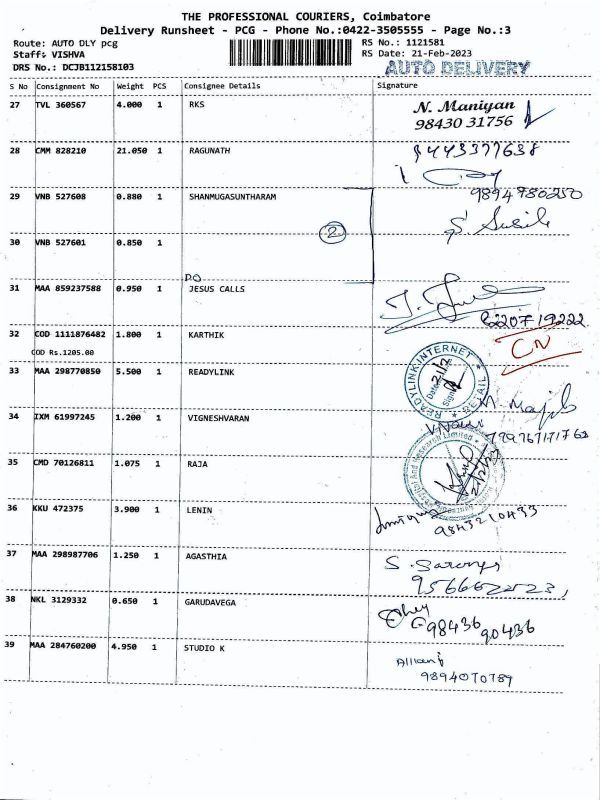 THE PROFESSIONAL COURIERS, Coimbatore
Delivery Runsheet - PCG - Phone No.:0422-3505555 - Page No.:3
Route: AUTO DLY pcg
RS No.: 1121581
Staff: VISHVA
RS Date: 21-Feb-2023
DRS No.: DCJB112158103
AUTO DELIVERY
S No Consignment No Weight PCS Consignee Details Signature
27 TVL 360567 4.000 1 RKS
N. Maniyan
98430 31756
28 CMM 828210 21.050 1 RAGUNATH
8443377638
29 VNB 527608 0.880 1 SHANMUGASUNTHARAM
9894780250
2
30 VNB 527601 0.850 1
DO
31 MAA 859237588 0.950 1 JESUS CALLS
6220719222
32 COD 1111876482 1.800 1 KARTHIK
CN
COD Rs.1205.00
33 MAA 298770850 5.500 1 READYLINK
READYLINK INTERNET
RETAIL
34 IXM 61997245 1.200 1 VIGNESHVARAN
35 CMD 70126811 1.075 1 RAJA
And Research Limited
36 KKU 472375 3.900 1 LENIN
9843210433
37 MAA 298987706 1.250 1 AGASTHIA
38 NKL 3129332 0.650 1 GARUDAVEGA
98436 90436
39 MAA 284760200 4.950 1 STUDIO K
9894070789